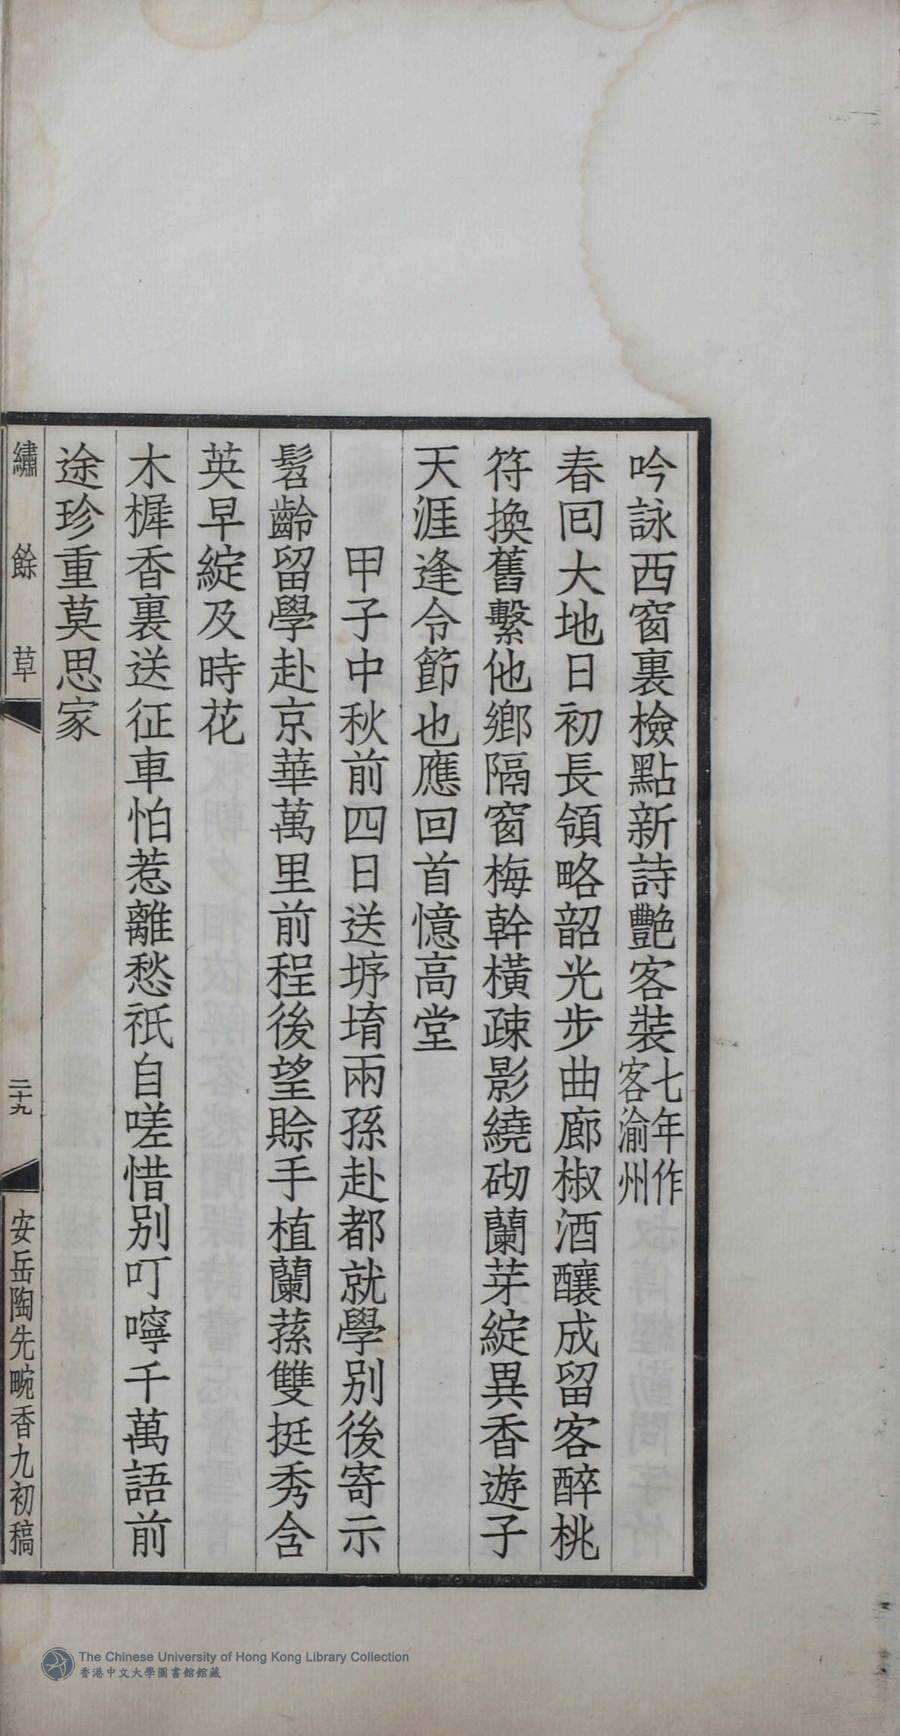 吟詠西窗裏檢點新詩艷客裝七年作客渝州
春回大地日初長領略韶光步曲廊椒酒釀成留客醉桃
符換舊繫他鄉隔窗梅幹橫疎影繞砌蘭芽綻異香遊子
天涯逢令節也應回首憶高堂
甲子中秋前四日送垿堉兩孫赴都就學別後寄示
髫齡留學赴京華萬里前程後望賒手植蘭蓀雙挺秀含
英早綻及時花
木樨香裏送征車怕惹離愁祇自嗟惜別叮嚀千萬語前
途珍重莫思家
繡餘草
二十九
安岳陶先畹香九初稿
The Chinese University of Hong Kong Library Collection
香港中文大學圖書館館藏